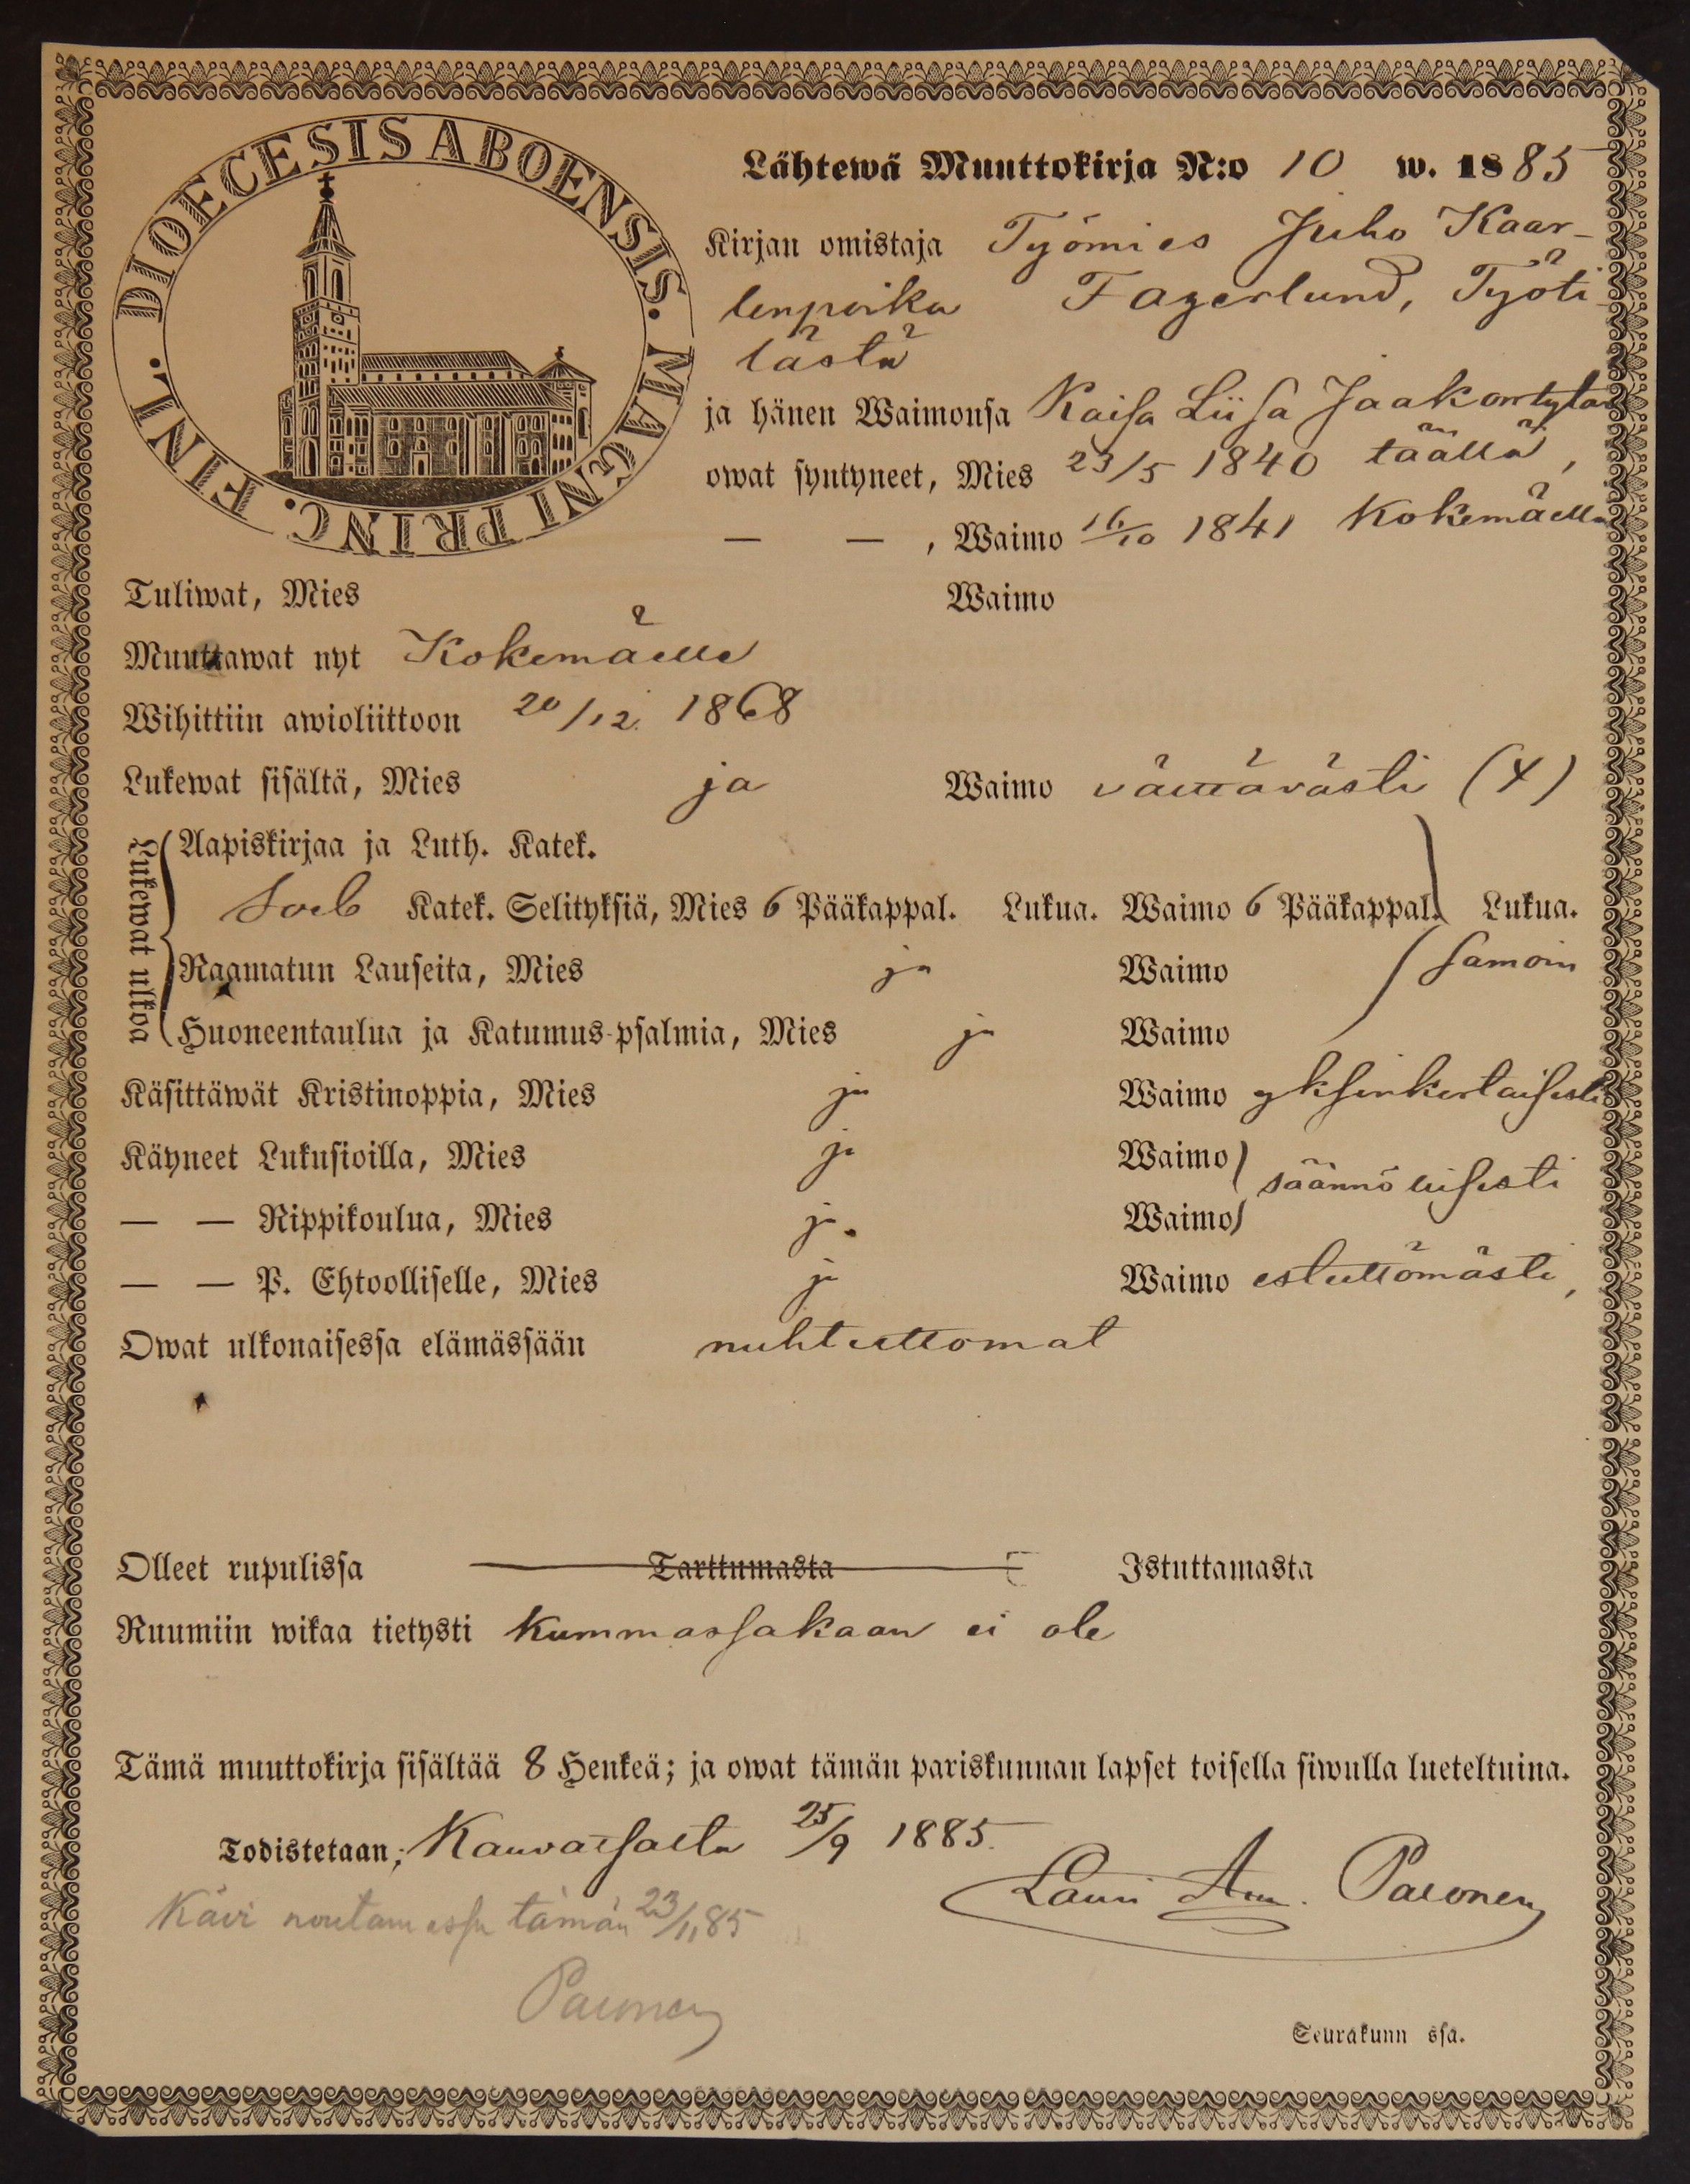 DIOECESIS ABOENSIS. MAGNI PRINC. FINL.
Lähtewä Muuttokirja N:o 10 w. 1885
Kirjan omistaja Työmies Juho Kaar-
lenpoika Fagerlund, Työti-
lästä
ja hänen Waimonsa Kaisa Liisa Jaakontytär
owat syntyneet, Mies 23/5 1840 täällä,
— — , Waimo 16/10 1841 Kokemäellä
Tuliwat, Mies Waimo
Muuttawat nyt Kokemäelle
Wihittiin awioliittoon 20/12 1868
Lukewat sisältä, Mies ja Waimo välttävästi (4)
Lukewat ulkoa
Aapiskirjaa ja Luth. Katek.
Soeb Katek. Selityksiä, Mies 6 Pääkappal. Lukua. Waimo 6 Pääkappal. Lukua.
Raamatun Lauseita, Mies ja Waimo samoin
Huoneentaulua ja Katumus-psalmia, Mies ja Waimo
Käsittäwät Kristinoppia, Mies ja Waimo yksinkertaisesti
Käyneet Lukusioilla, Mies ja Waimo säännöllisesti
— — Rippikoulua, Mies ja Waimo
— — P. Ehtoolliselle, Mies ja Waimo estettömästi,
Owat ulkonaisessa elämässään nuhteettomat
Olleet rupulissa Tarttumasta Istuttamasta
Ruumiin wikaa tietysti kummassakaan ei ole
Tämä muuttokirja sisältää 8 Henkeä; ja owat tämän pariskunnan lapset toisella siwulla lueteltuina.
Todistetaan; Kauvatsalta 25/9 1885.
Lauri Paionen
Kävi noutamassa tämän 23/11 85
Paionen
Seurakunn ssa.